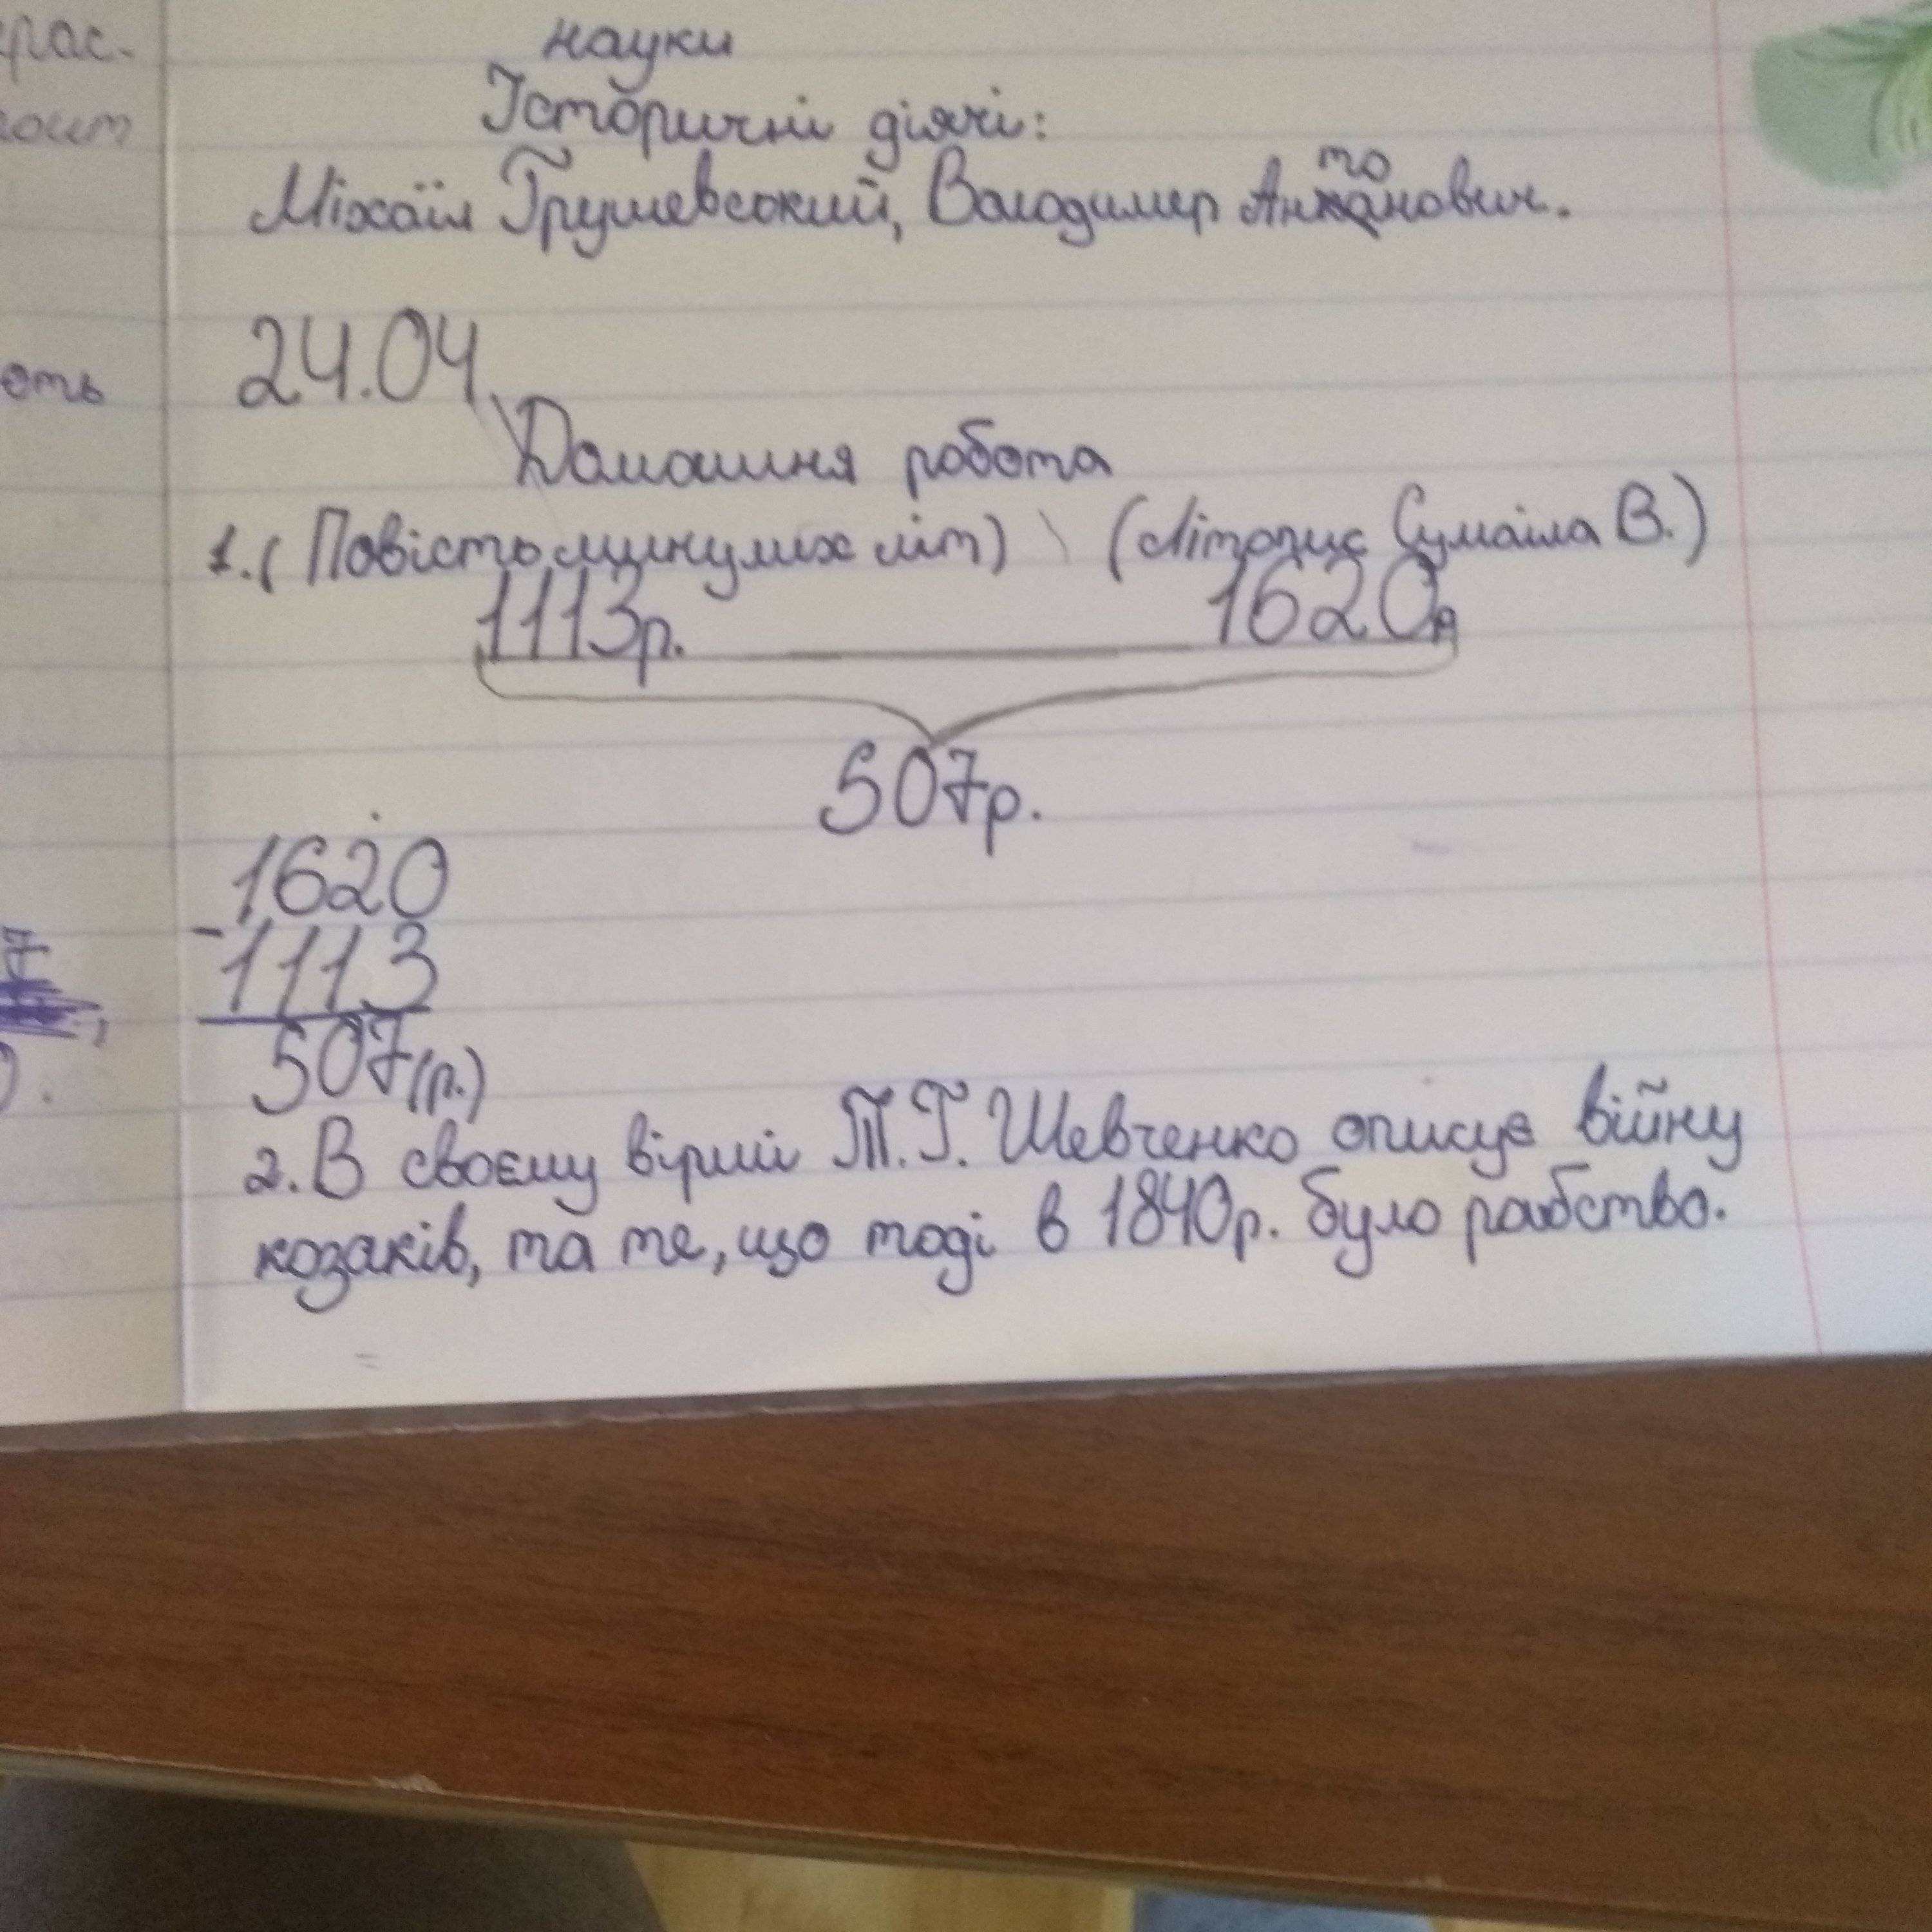 рас.
науки
Історичні діячі:
Міхаїл Грушевський, Володимер Антонович.
24.04
оть
Домашня робота
1. (Повість минулих літ) (Літопис Сумаіла В.)
1113р. 1620р
507р.
1620
-1113
507(р.)
7
2. В своєму вірші Т.Г. Шевченко описує війну
козаків, та те, що тоді в 1840р. було рабство.